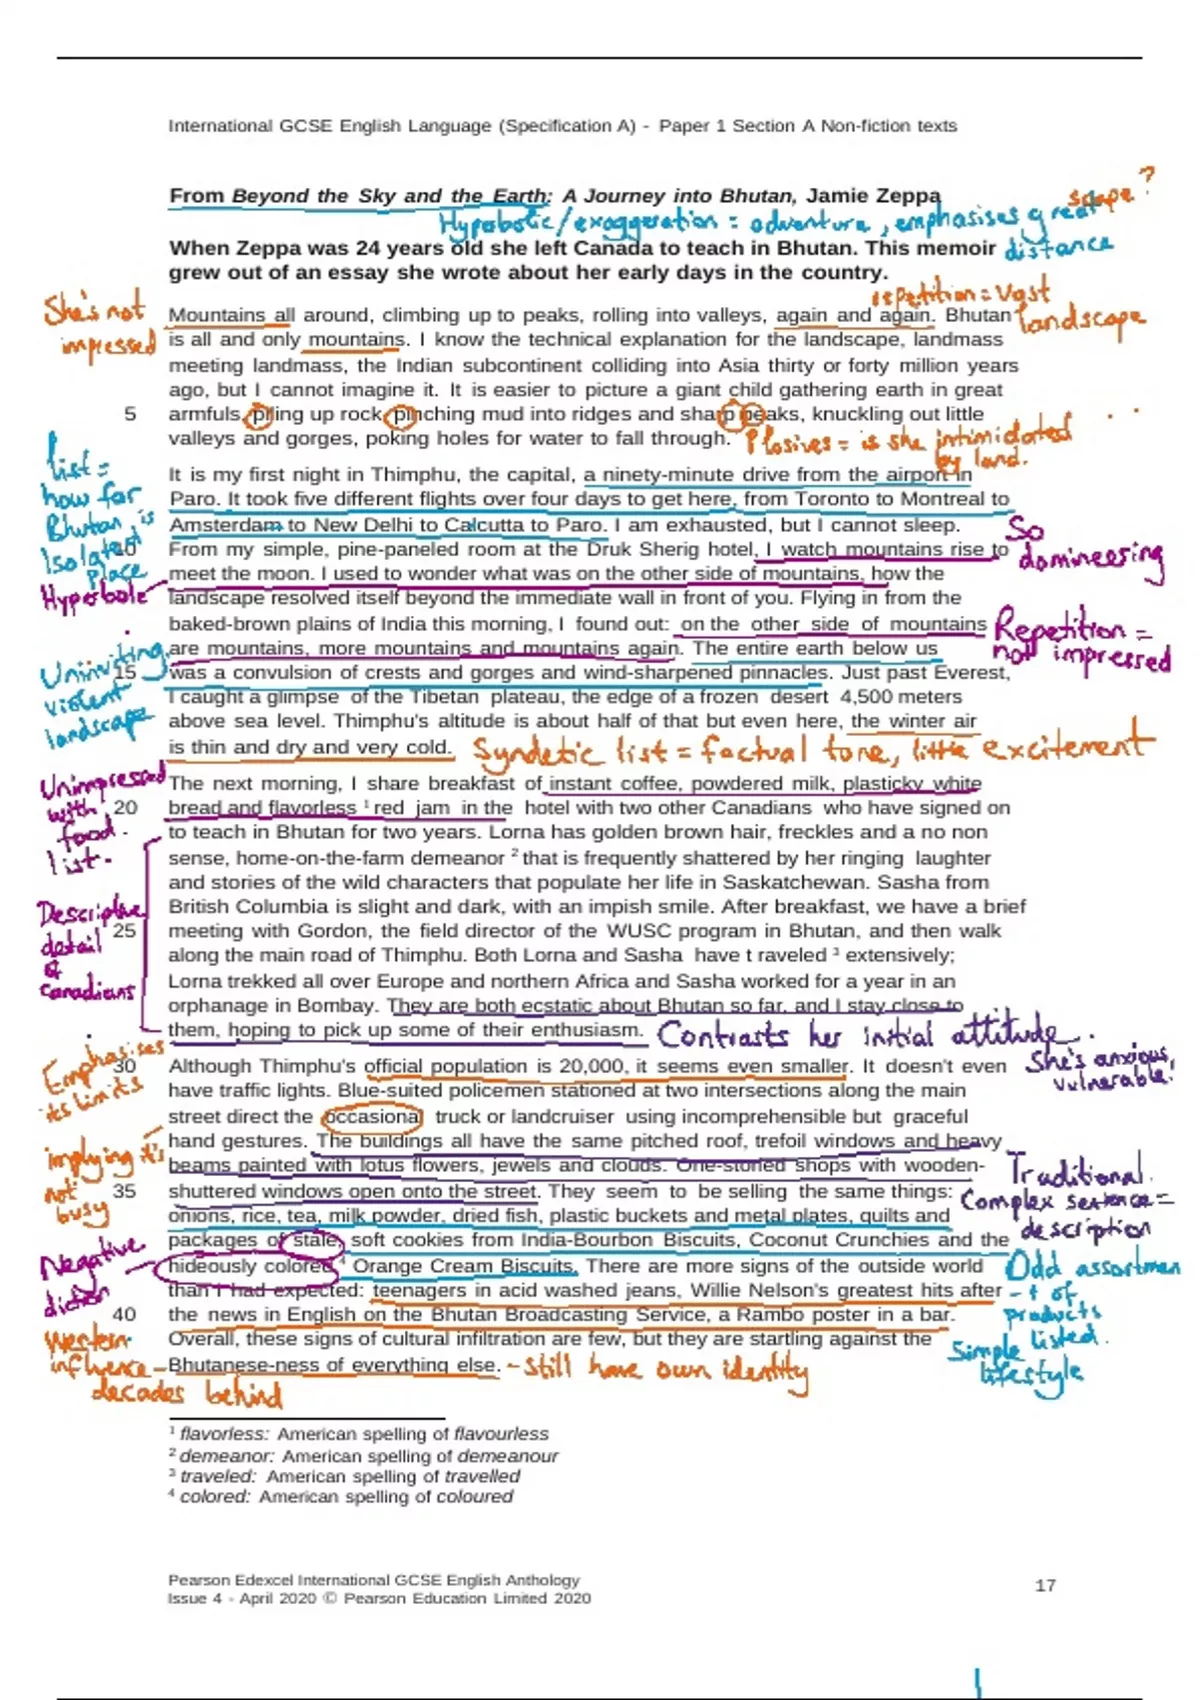 International GCSE English Language (Specification A) - Paper 1 Section A Non-fiction texts
From Beyond the Sky and the Earth: A Journey into Bhutan, Jamie Zeppa
scope?
Hypobolic/exaggeration = adventure, emphasises great
When Zeppa was 24 years old she left Canada to teach in Bhutan. This memoir
distance
grew out of an essay she wrote about her early days in the country.
repetition = Vast
landscape
She's not
impressed
Mountains all around, climbing up to peaks, rolling into valleys, again and again. Bhutan
is all and only mountains. I know the technical explanation for the landscape, landmass
meeting landmass, the Indian subcontinent colliding into Asia thirty or forty million years
ago, but I cannot imagine it. It is easier to picture a giant child gathering earth in great
5 armfuls, piling up rock, pinching mud into ridges and sharp peaks, knuckling out little
valleys and gorges, poking holes for water to fall through.
Plosives = is she intimidated
by land.
list =
how far
Bhutan is
Isolated
place
It is my first night in Thimphu, the capital, a ninety-minute drive from the airport in
Paro. It took five different flights over four days to get here, from Toronto to Montreal to
Amsterdam to New Delhi to Calcutta to Paro. I am exhausted, but I cannot sleep.
10 From my simple, pine-paneled room at the Druk Sherig hotel, I watch mountains rise to
meet the moon. I used to wonder what was on the other side of mountains, how the
landscape resolved itself beyond the immediate wall in front of you. Flying in from the
baked-brown plains of India this morning, I found out: on the other side of mountains
are mountains, more mountains and mountains again. The entire earth below us
15 was a convulsion of crests and gorges and wind-sharpened pinnacles. Just past Everest,
I caught a glimpse of the Tibetan plateau, the edge of a frozen desert 4,500 meters
above sea level. Thimphu's altitude is about half of that but even here, the winter air
is thin and dry and very cold.
So
domineering
Hyperbole
Repetition =
not impressed
Uninviting,
violent
landscape
Syndetic list = factual tone, little excitement
Unimpressed
with
food.
list.
The next morning, I share breakfast of instant coffee, powdered milk, plasticky white
20 bread and flavorless 1 red jam in the hotel with two other Canadians who have signed on
to teach in Bhutan for two years. Lorna has golden brown hair, freckles and a no non
sense, home-on-the-farm demeanor 2 that is frequently shattered by her ringing laughter
and stories of the wild characters that populate her life in Saskatchewan. Sasha from
British Columbia is slight and dark, with an impish smile. After breakfast, we have a brief
25 meeting with Gordon, the field director of the WUSC program in Bhutan, and then walk
along the main road of Thimphu. Both Lorna and Sasha have t raveled 3 extensively;
Lorna trekked all over Europe and northern Africa and Sasha worked for a year in an
orphanage in Bombay. They are both ecstatic about Bhutan so far, and I stay close to
them, hoping to pick up some of their enthusiasm.
Descriptive
detail
of
Canadians
Contrasts her initial attitude.
She's anxious,
vulnerable!
Emphasises
its limits
30 Although Thimphu's official population is 20,000, it seems even smaller. It doesn't even
have traffic lights. Blue-suited policemen stationed at two intersections along the main
street direct the occasional truck or landcruiser using incomprehensible but graceful
hand gestures. The buildings all have the same pitched roof, trefoil windows and heavy
beams painted with lotus flowers, jewels and clouds. One-storied shops with wooden-
35 shuttered windows open onto the street. They seem to be selling the same things:
onions, rice, tea, milk powder, dried fish, plastic buckets and metal plates, quilts and
packages of stale, soft cookies from India-Bourbon Biscuits, Coconut Crunchies and the
hideously colored 4 Orange Cream Biscuits. There are more signs of the outside world
than I had expected: teenagers in acid washed jeans, Willie Nelson's greatest hits after
40 the news in English on the Bhutan Broadcasting Service, a Rambo poster in a bar.
Overall, these signs of cultural infiltration are few, but they are startling against the
Bhutanese-ness of everything else.
implying it's
not
busy
Traditional.
Complex sentence =
description
Negative
diction
Odd assortmen
- t of
products
listed.
Simple
lifestyle
Western
influence -
decades behind
- Still have own identity
1 flavorless: American spelling of flavourless
2 demeanor: American spelling of demeanour
3 traveled: American spelling of travelled
4 colored: American spelling of coloured
Pearson Edexcel International GCSE English Anthology
Issue 4 - April 2020 © Pearson Education Limited 2020
17